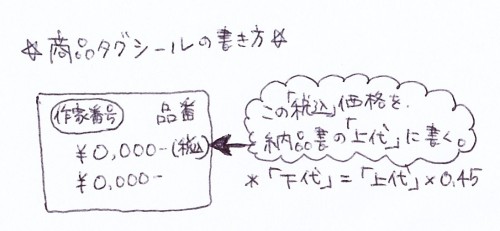 ☆商品タグシールの書き方☆
作家番号 品番
¥0,000-(税込)
¥0,000-
この「税込」価格を、
納品書の「上代」に書く。
*「下代」=「上代」×0.45